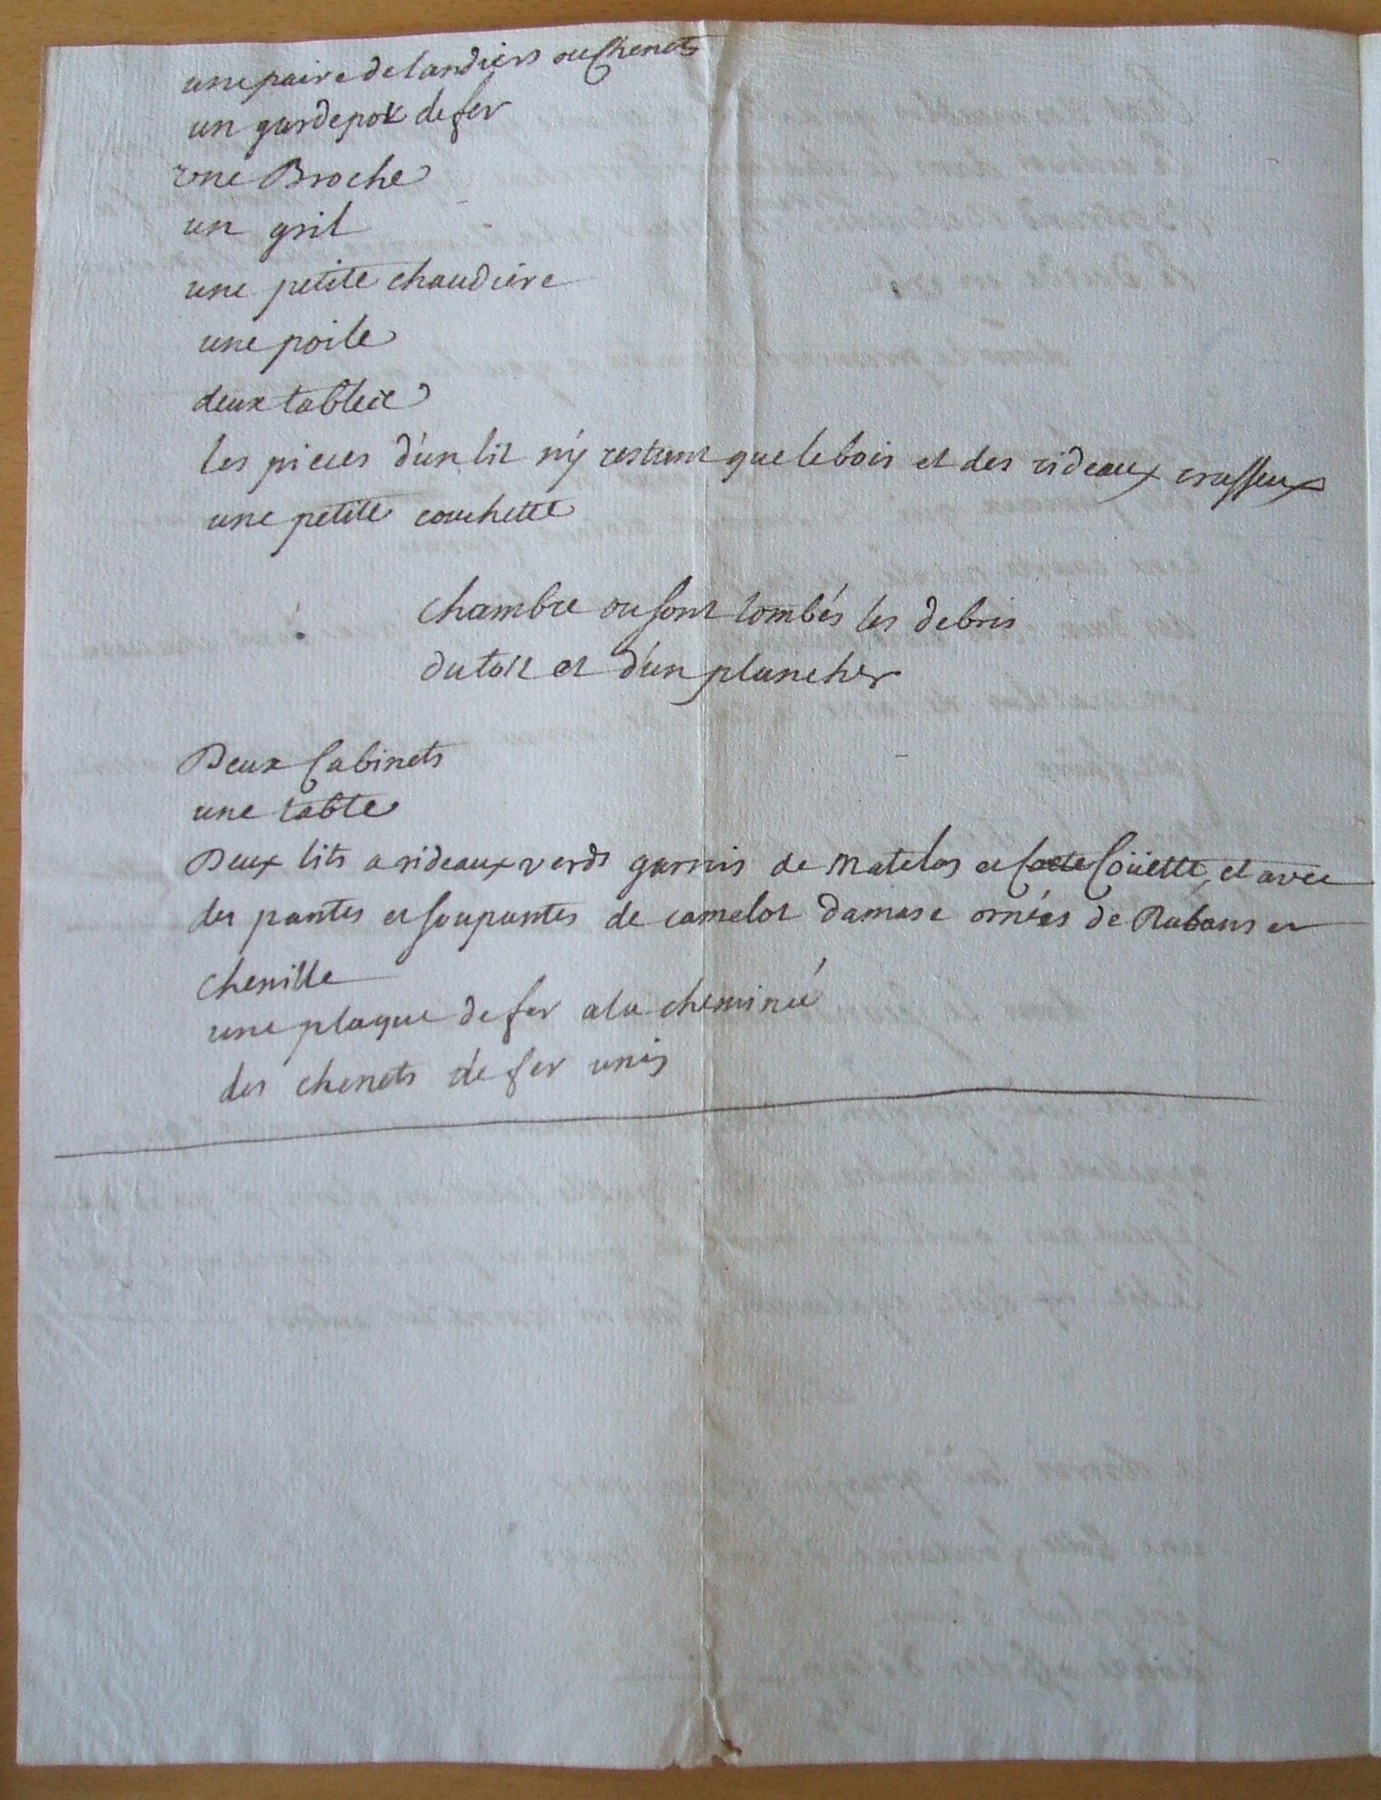 une paire de landiers ou Chenets
un gardepot de fer
une Broche
un gril
une petite chaudiere
une poile
deux table
les pieces d'un lit n'y restant que le bois et des rideaux crasseux
une petite couchette
chambre ou sont tombés les debris
du toit et d'un plancher
Deux Cabinets
une table
Deux lits a rideaux verds garnis de Matelas et Coëte Coüette, et avec
des pantes et soupantes de camelot damasé ornées de Rubans et
chenille
une plaque de fer a la cheminée
des chenets de fer unis